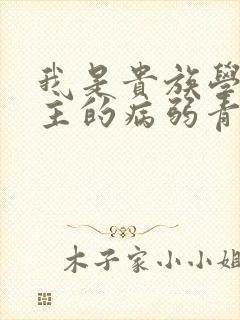 我是貴族學
主的病弱青
木子家小小姐